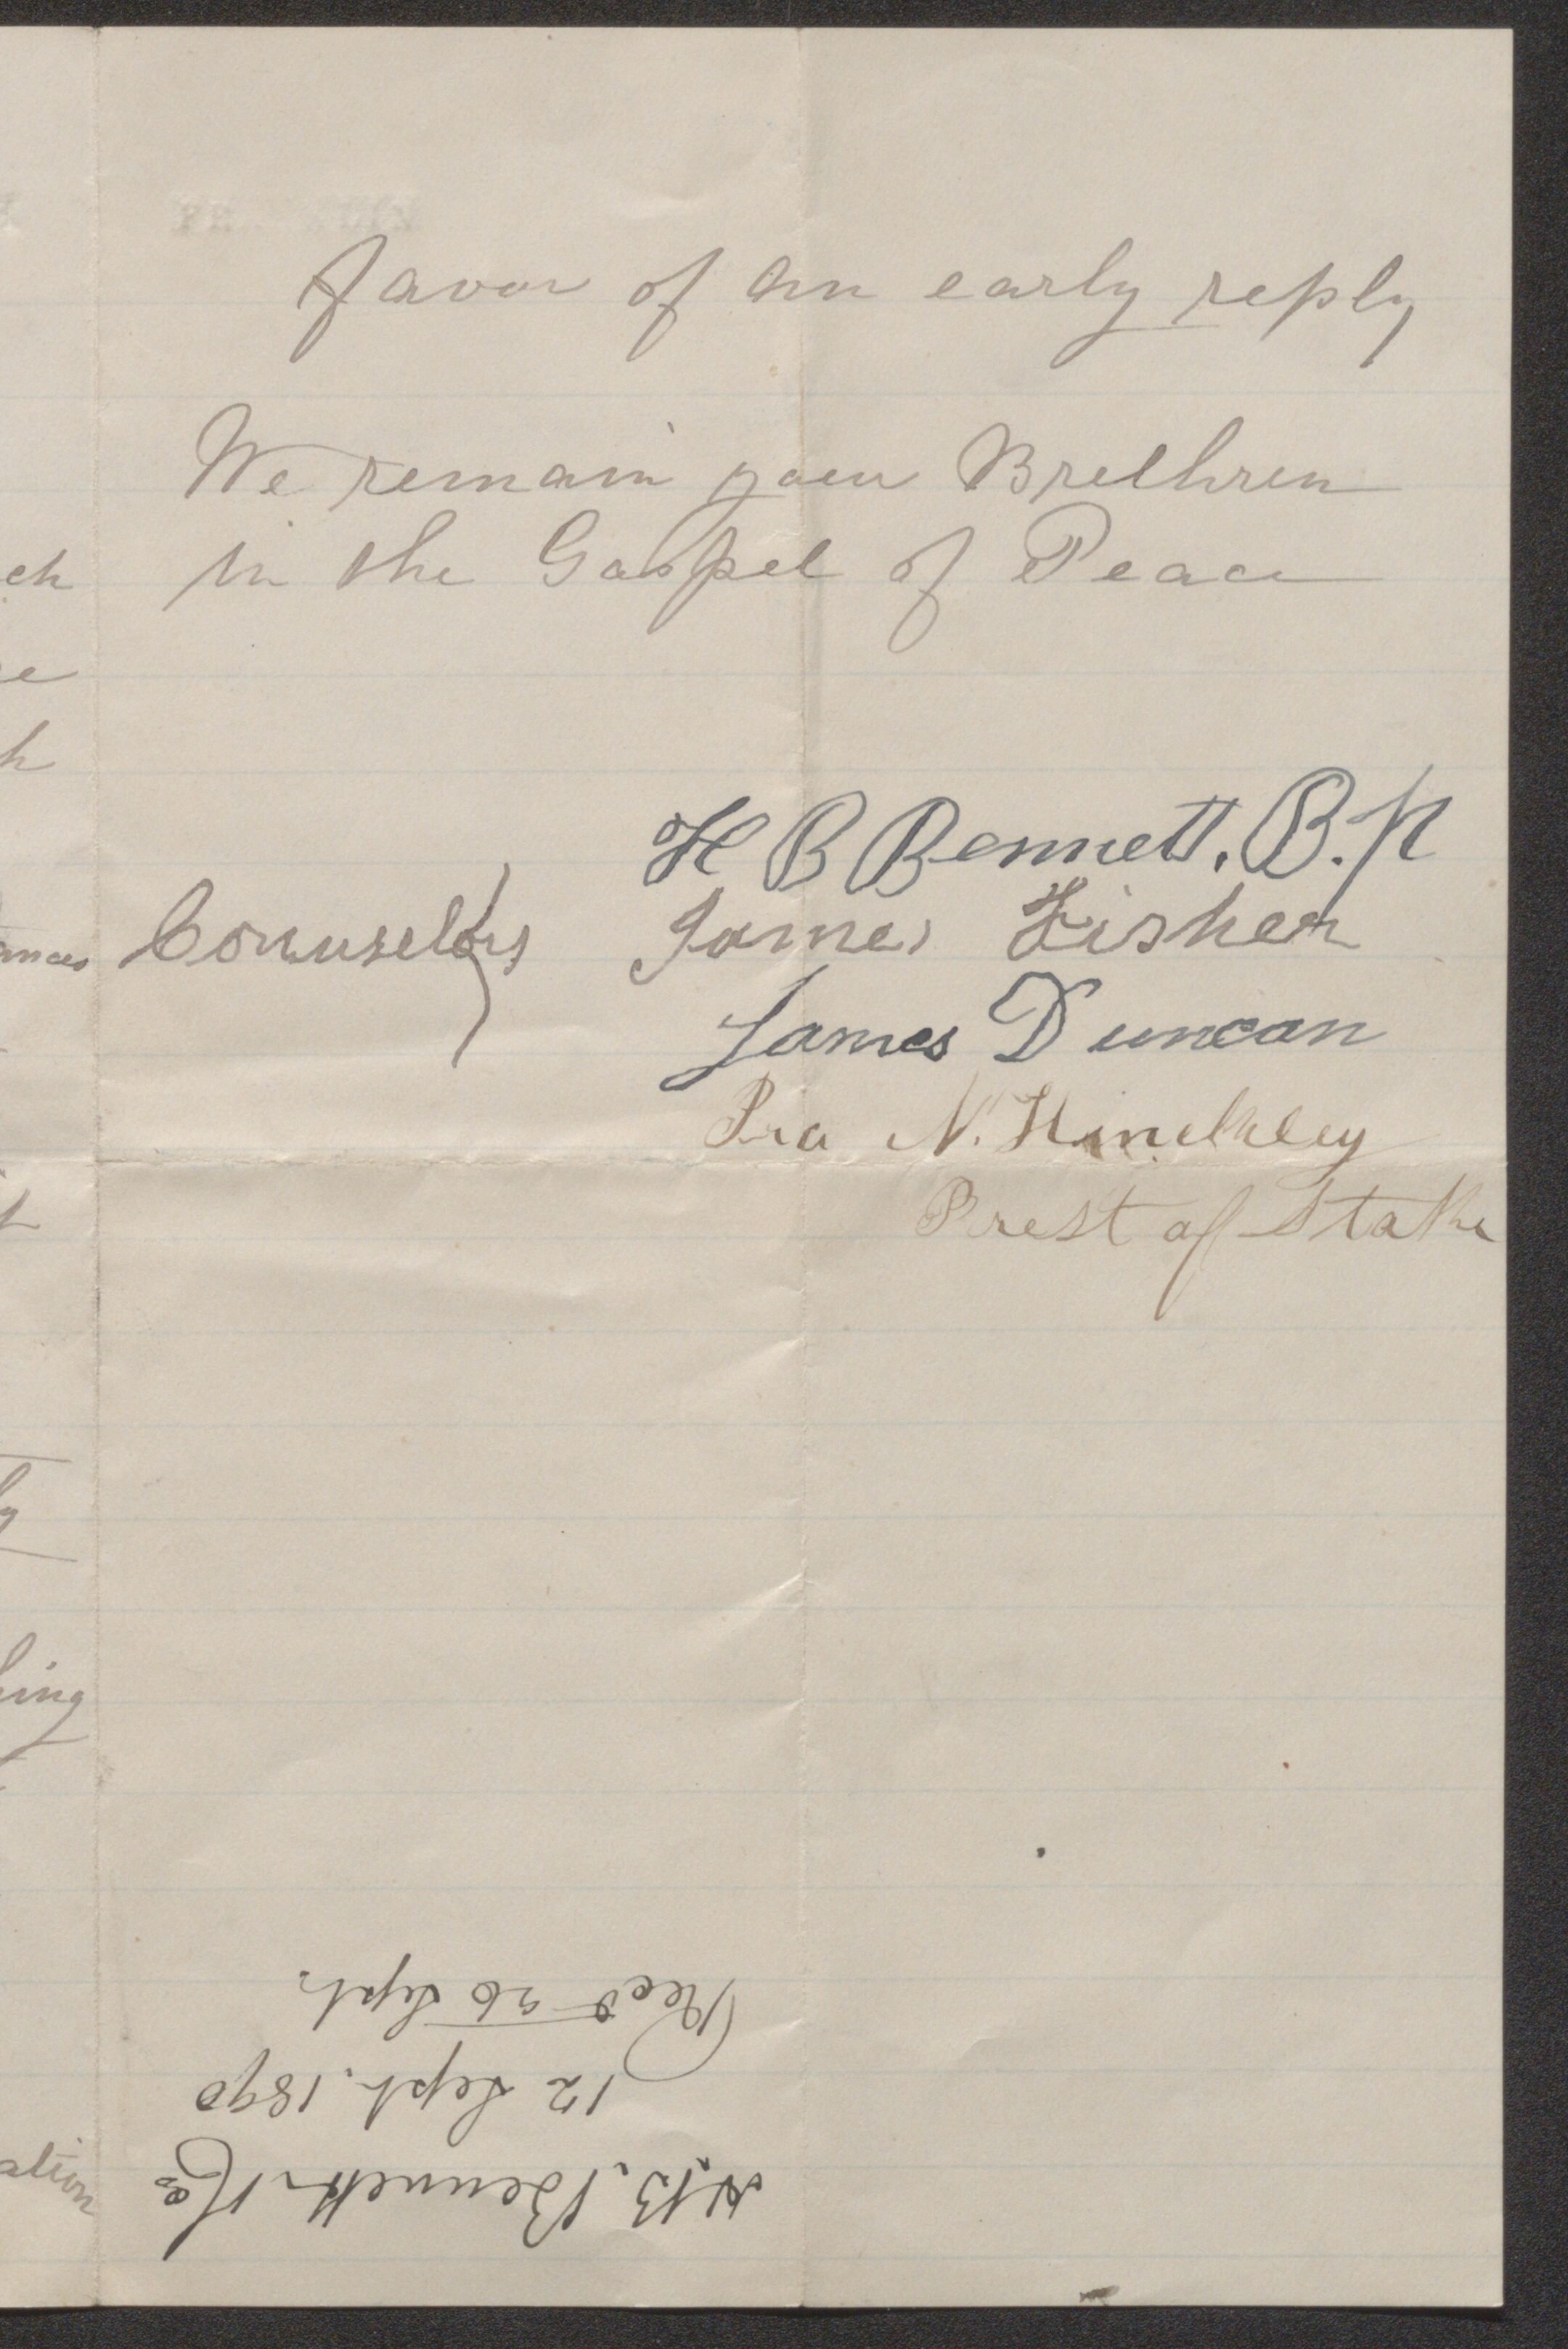 favor of an early reply
We remain your Brethren
in the Gospel of Peace
H B Bennett. B.
Counselors } James Fisher
James Duncan
Ira N. Hinckley
Prest of Stake
H.B. Bennett &
12 Sept. 1890
Recd 26 Sept.
ch
e
h
ances
t
ly
hing
ation